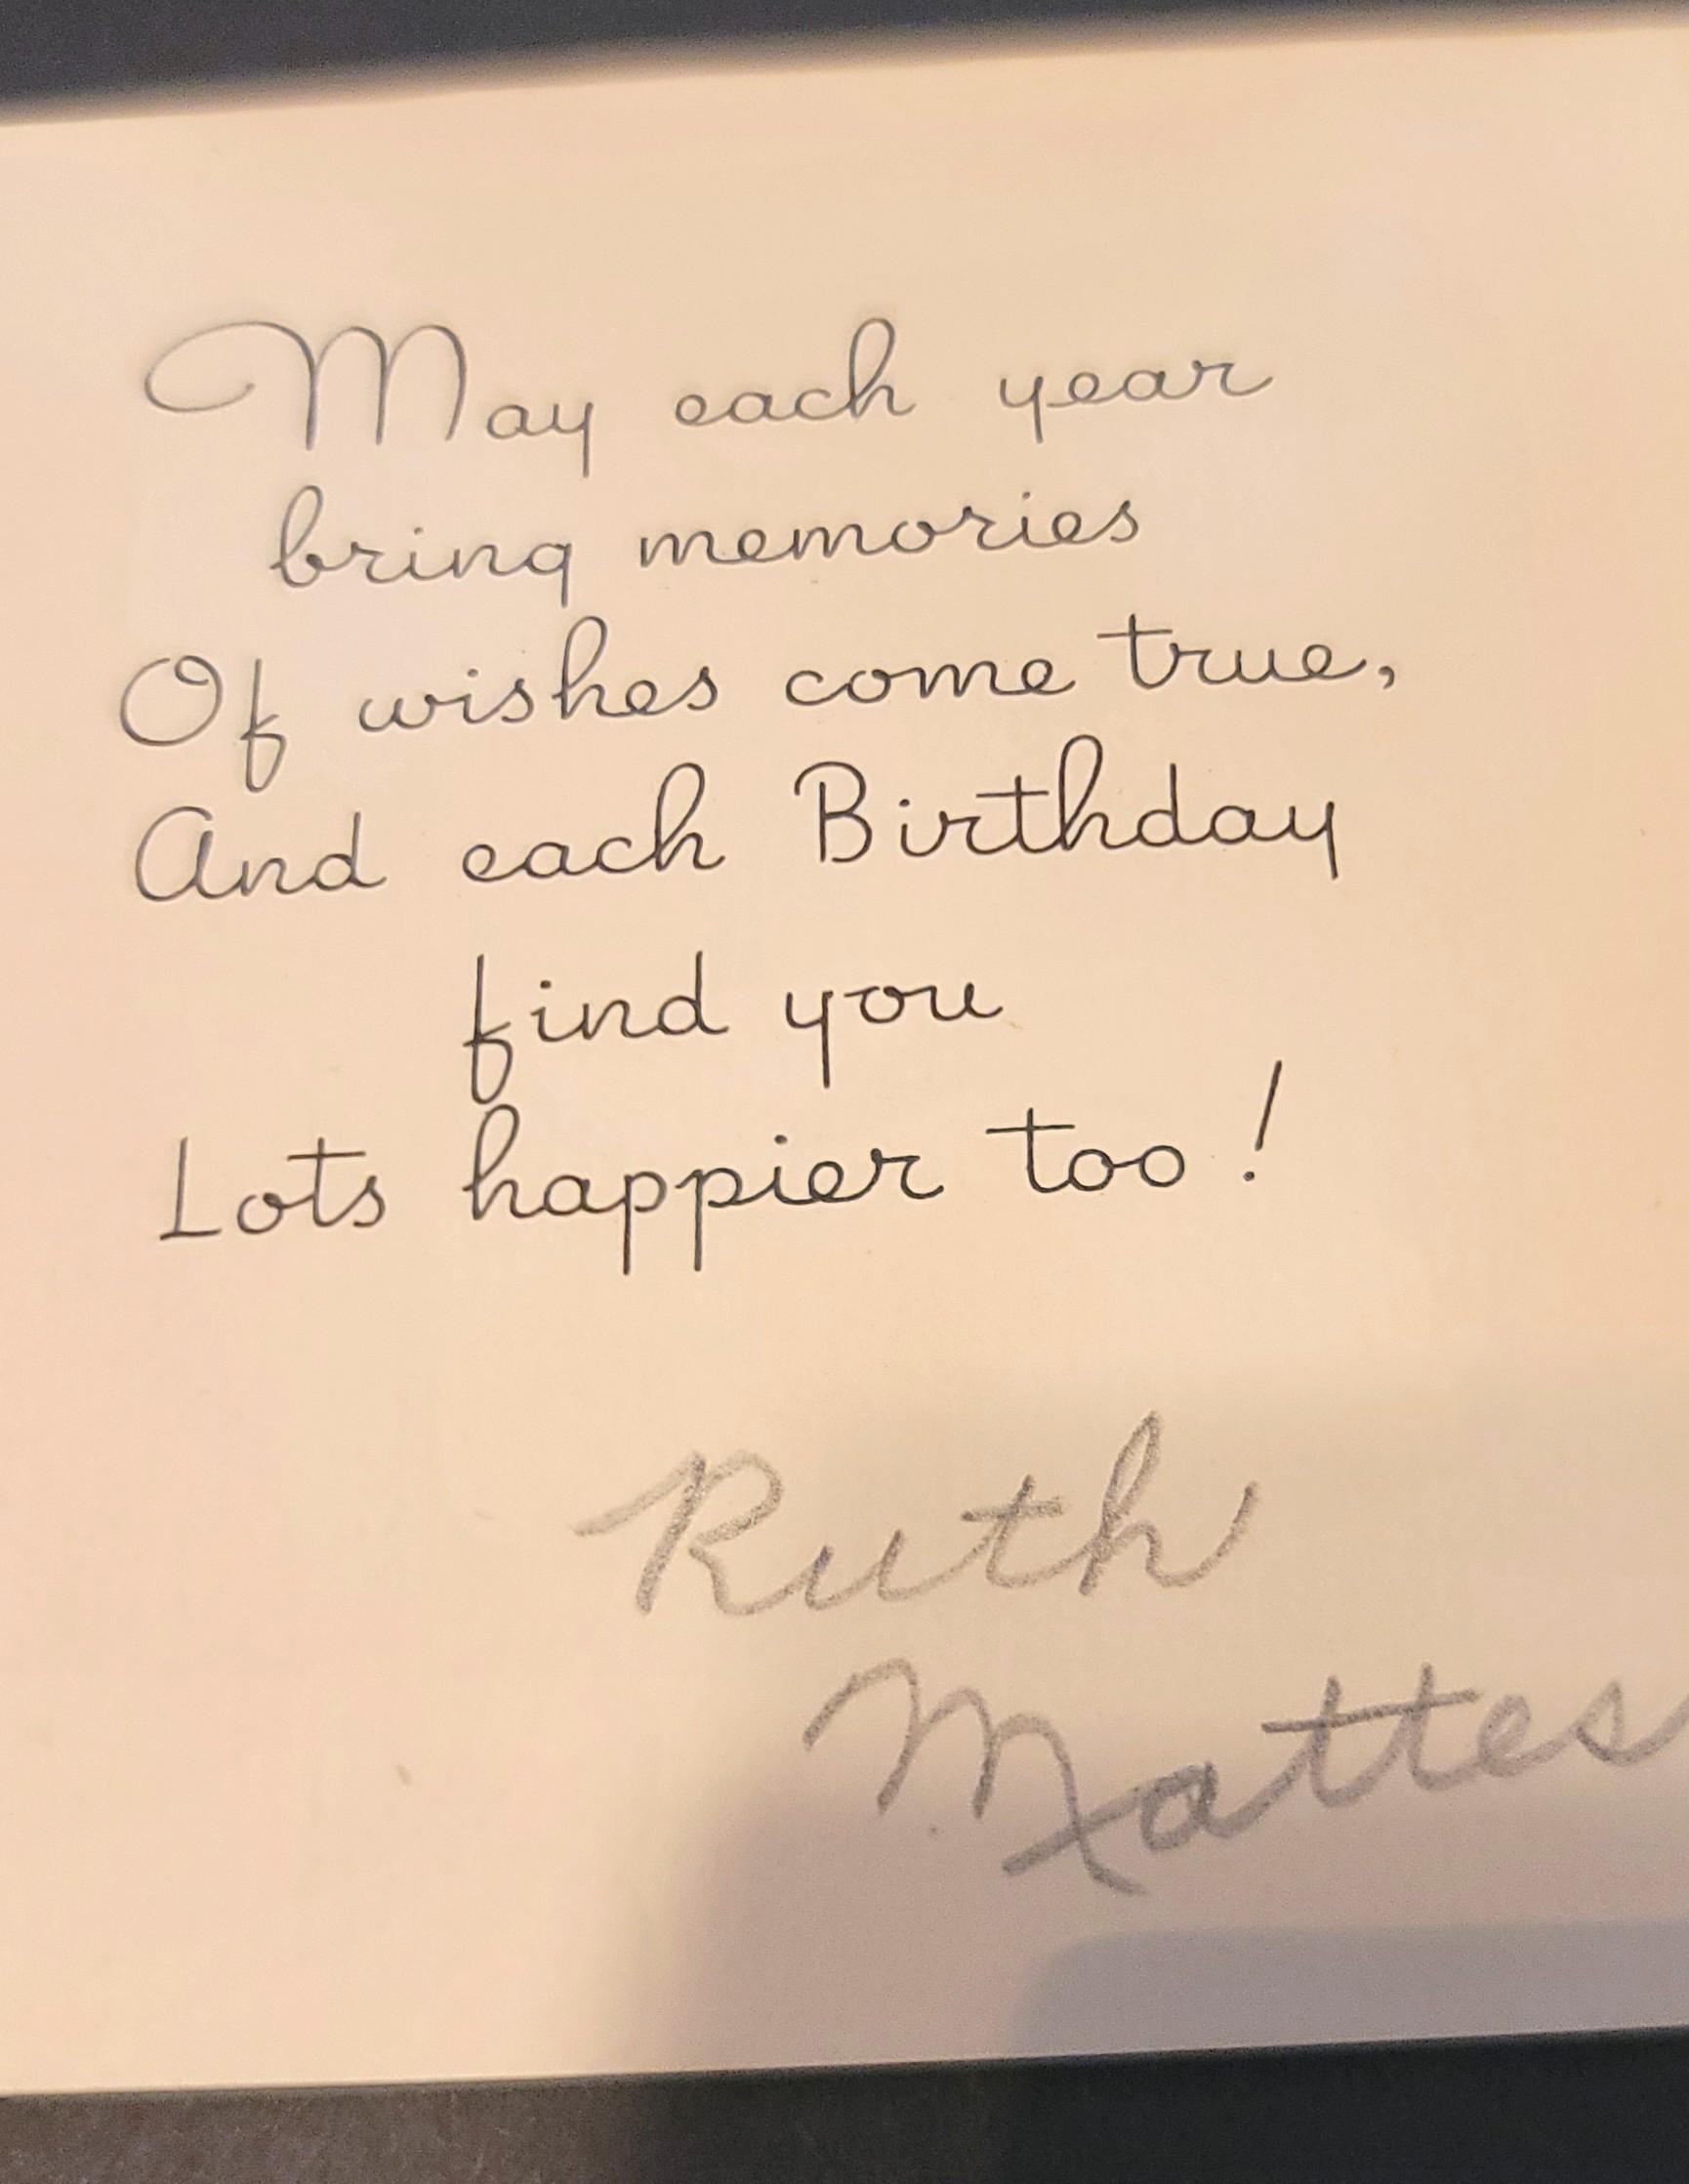 May each year
bring memories
Of wishes come true,
And each Birthday
find you
Lots happier too!
Ruth
Mattes